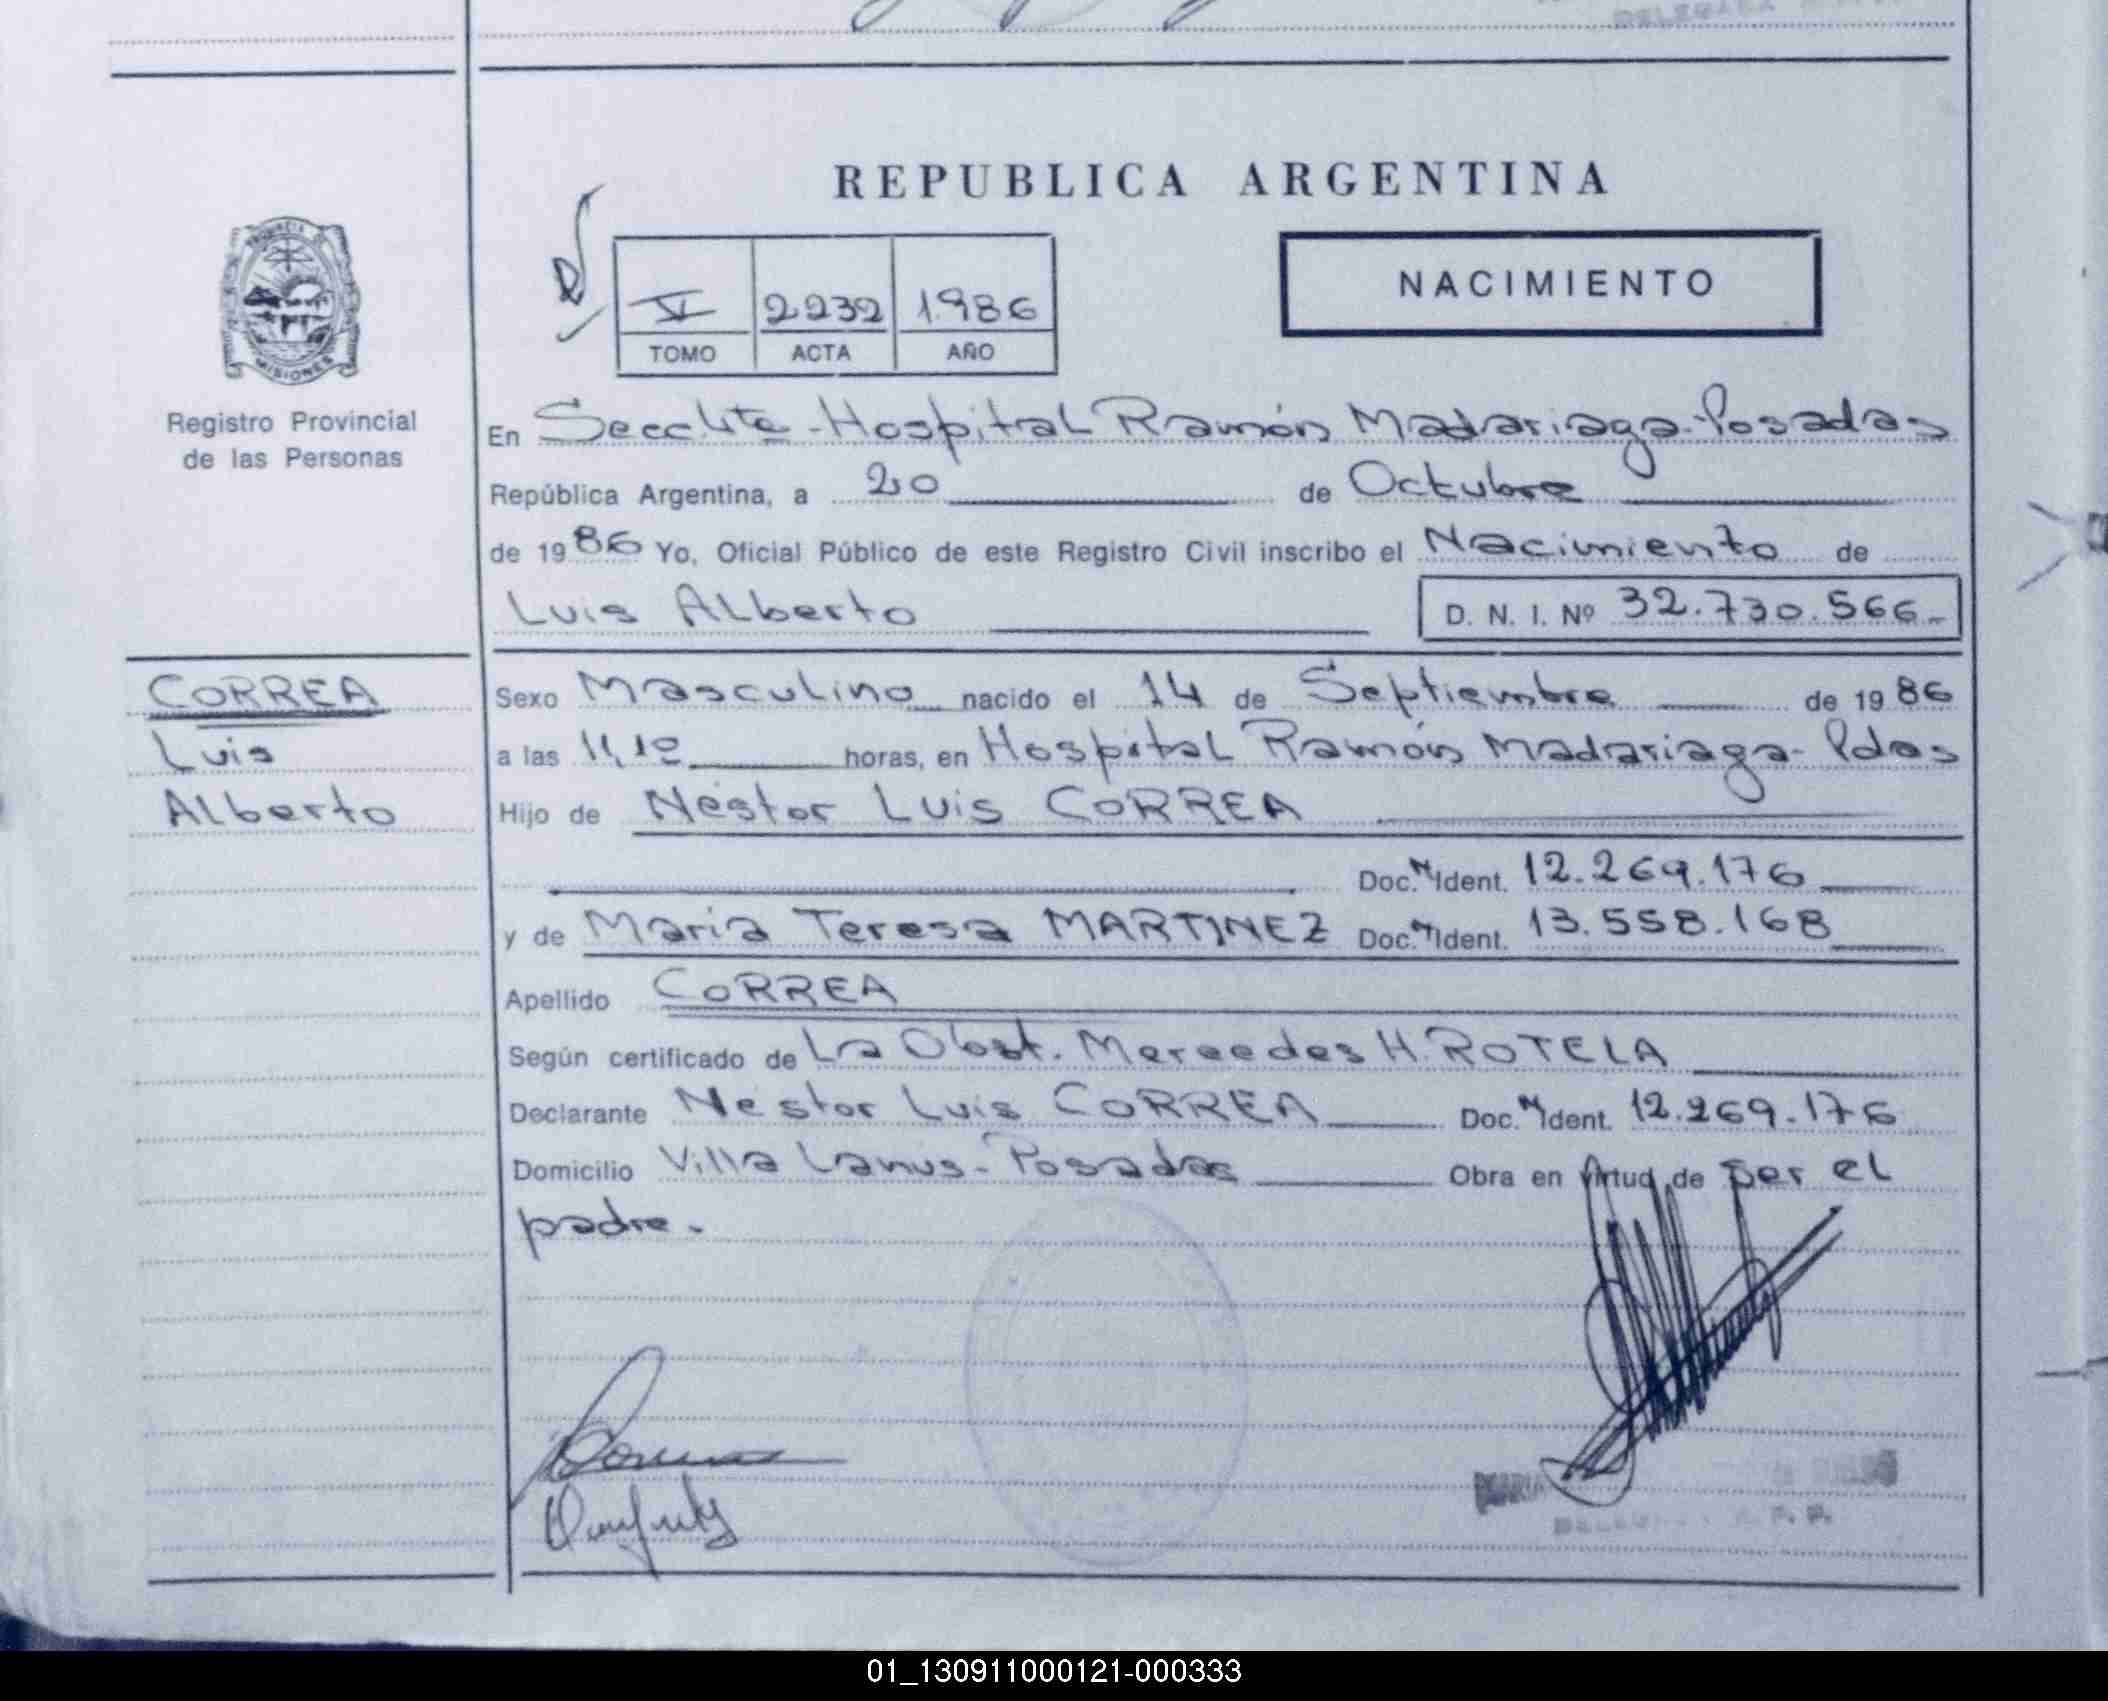 REPUBLICA ARGENTINA
NACIMIENTO
V 2232 1986
TOMO ACTA AÑO
PROVINCIA DE
MISIONES
Registro Provincial
de las Personas
En Hospital Ramón Madariaga-Posadas
República Argentina, a 20 de Octubre
de 1986 Yo, Oficial Público de este Registro Civil inscribo el Nacimiento de
Luis Alberto D. N. I. Nº 32.730.566.-
CORREA
Luis
Alberto
Sexo Masculino nacido el 14 de Septiembre de 1986
a las 11,10 horas, en Hospital Ramón Madariaga-Pdas
Hijo de Néstor Luis CORREA
Doc. N/Ident. 12.269.176
y de Maria Teresa MARTINEZ Doc. N/Ident. 13.558.168
Apellido CORREA
Según certificado de La Obst. Mercedes H. ROTELA
Declarante Nestor Luis CORREA Doc. N/Ident. 12.269.176
Domicilio Villa Lanus-Posadas Obra en virtud de ser el
padre.
01_130911000121-000333